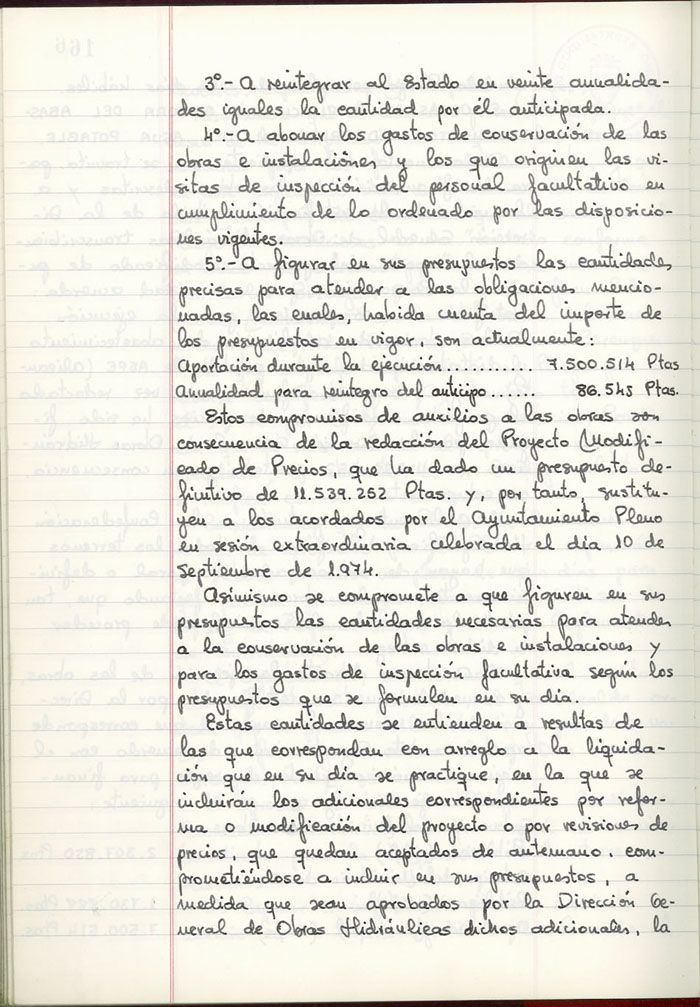 3º.- A reintegrar al Estado en veinte anualida-
des iguales la cantidad por él anticipada.
4º.- A abonar los gastos de conservación de las
obras e instalaciónes y los que originen las vi-
sitas de inspección del personal facultativo en
cumplimiento de lo ordenado por las disposicio-
nes vigentes.
5º.- A figurar en sus presupuestos las cantidades
precisas para atender a las obligaciones mencio-
nadas, las cuales, habida cuenta del importe de
los presupuestos en vigor, son actualmente:
Aportación durante la ejecución........... 7.500.514 Ptas
Anualidad para reintegro del anticipo...... 86.545 Ptas.
Estos compromisos de auxilios a las obras son
consecuencia de la redacción del Proyecto (Modifi-
cado de Precios, que ha dado un presupuesto de-
finitivo de 11.539.252 Ptas. y, por tanto, sustitu-
yen a los acordados por el Ayuntamiento Pleno
en sesión extraordinaria celebrada el día 10 de
Septiembre de 1.974.
Asimismo se compromete a que figuren en sus
presupuestos las cantidades necesarias para atender
a la conservación de las obras e instalaciones y
para los gastos de inspección facultativa según los
presupuestos que se formulen en su dia.
Estas cantidades se entienden a resultas de
las que correspondan con arreglo a la liquida-
ción que en su día se practique, en la que se
incluirán los adicionales correspondientes por refor-
ma o modificación del proyecto o por revisiones de
precios, que quedan aceptados de antemano, com-
prometiéndose a incluir en sus presupuestos, a
medida que sean aprobados por la Dirección Ge-
neral de Obras Hidráulicas dichos adicionales, la